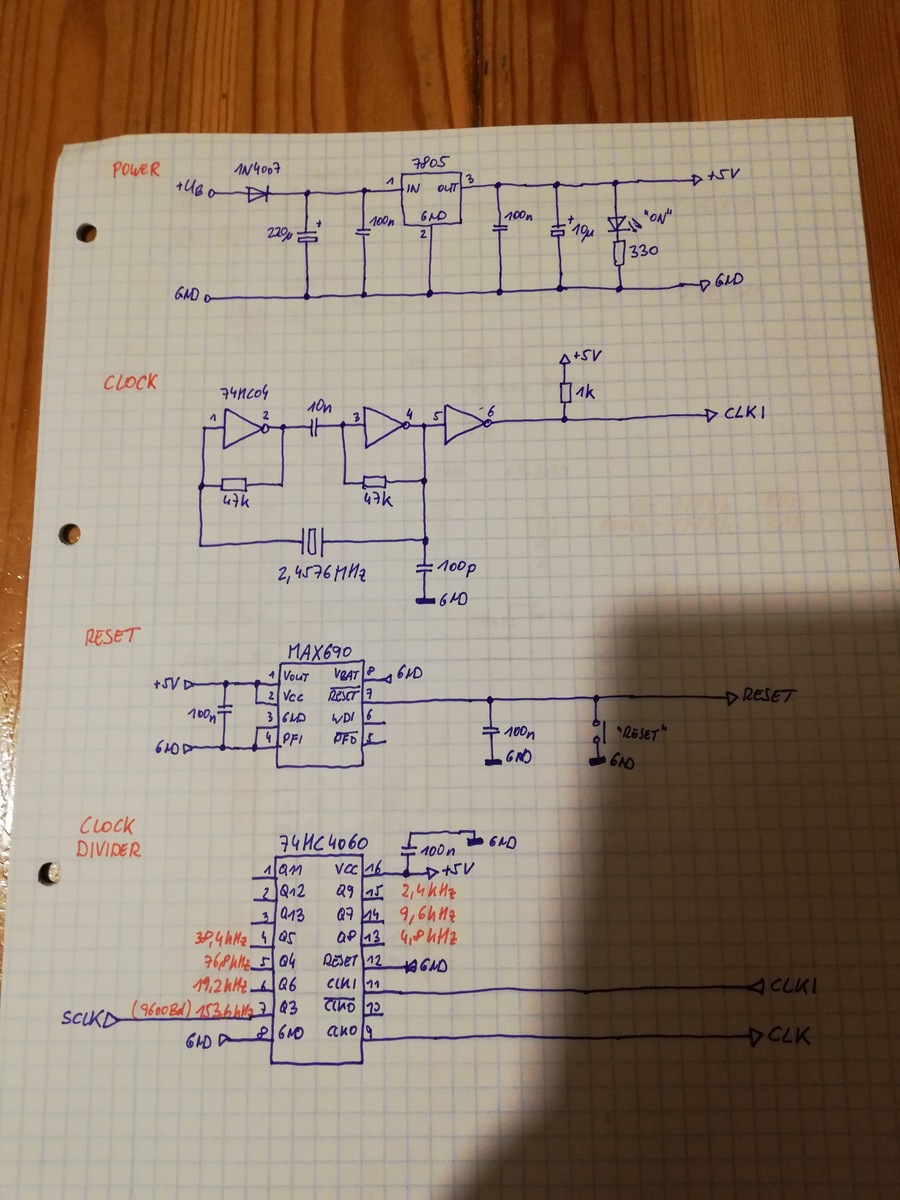 POWER
1N4007
7805
+UB
1 IN OUT 3
+5V
220µ +
100n
GND
2
100n
+ 10µ
"ON"
330
GND
GND
CLOCK
74HC04
+5V
1k
1 2 10n 3 4 5 6
CLK1
47k
47k
2,4576MHz
100p
GND
RESET
MAX690
+5V
1 VOUT VBAT 8 GND
2 VCC RESET 7
RESET
100n
3 GND WDI 6
GND
4 PFI PFO 5
100n
GND
"RESET"
GND
CLOCK
DIVIDER
74HC4060
100n
GND
1 Q11 VCC 16 +5V
2 Q12 Q9 15 2,4kHz
3 Q13 Q7 14 9,6kHz
38,4kHz 4 Q5 Q8 13 4,8kHz
76,8kHz 5 Q4 RESET 12 GND
19,2kHz 6 Q6 CLK1 11 CLK1
SCLK (9600Bd) 153,6kHz 7 Q3 CLKO 10
GND 8 GND CLKO 9 CLK